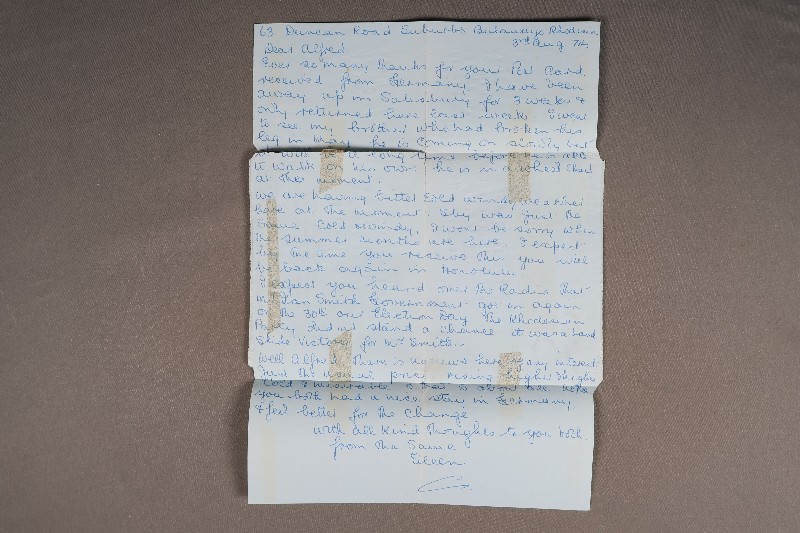 63 Duncan Road Suburbs Bulawayo Rhodesia
3rd Aug 74
Dear Alfred
Ever so many thanks for your Post Card
received from Germany. I have been
away up in Salisbury for 3 weeks &
only returned here last week. I went
to see my brother who had broken his
leg in May he is coming on slowly but
it will be a long time before he is able
to walk on his own he is in a wheel chair
at the moment.
We are having bitter cold winds
here at the moment. July was just the
same cold & windy, I wont be sorry when
the summer months are here. I expect
by the time you receive this you will
be back again in Honolulu.
I expect you heard over the Radio that
Ian Smith Government got in again
on the 30th our Election Day The Rhodesian
Party did not stand a chance it was a land
slide victory for Mr Smith.
Well Alfred there is no news here of any interest
Just the usual prices rising
cold & miserable
you both had a nice stay in Germany
& feel better for the change
with all kind thoughts to you both
from the Same
Eileen